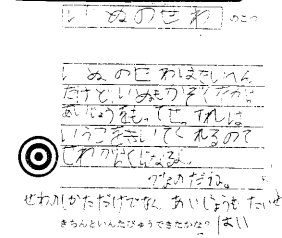 いぬのせわ のこつ
いぬのせわはたいへん
だけど、いぬもかぞくだから
あいじょうをもってせっすれば
いうことをきいてくれるので
せわがらくになるよ。
せわのしかただけでなく あいじょうも たいせ
きちんといんたびゅうできたかな? はい